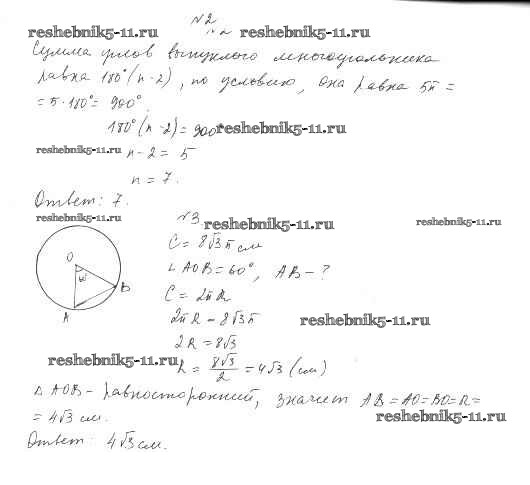 №2
reshebnik5-11.ru №2 reshebnik5-11.ru
Сумма углов выпуклого многоугольника
равна 180°(n-2), по условию, она равна 5π =
= 5·180° = 900°.
180°(n-2) = 900° reshebnik5-11.ru
reshebnik5-11.ru n-2 = 5
n = 7.
Ответ: 7.
reshebnik5-11.ru №3 reshebnik5-11.ru reshebnik5-11.ru
C = 8√3π см
∠AOB = 60°, AB - ?
C = 2πR
2πR = 8√3π reshebnik5-11.ru
2R = 8√3
reshebnik5-11.ru R = 8√3/2 = 4√3 (см)
O
60°
B
A
△ AOB - равносторонний, значит AB = AO = BO = R =
= 4√3 см. reshebnik5-11.ru
Ответ: 4√3 см.